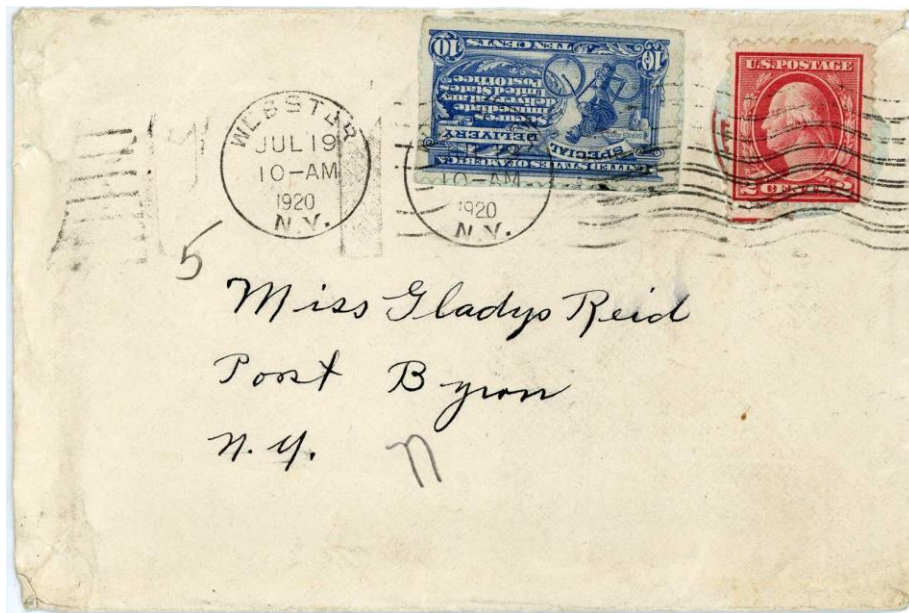 WEBSTER
JUL 19
10-AM
1920
N.Y.
10-AM
1920
N.Y.
UNITED STATES OF AMERICA
SPECIAL
DELIVERY
Secures
immediate
delivery at any
United States
Post office
10 TEN CENTS 10
U.S. POSTAGE
2 CENTS 2
5
Miss Gladys Reid
Port Byron
N.Y.
n